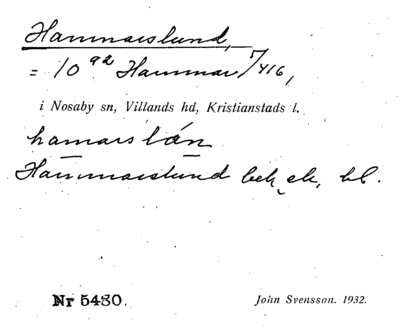 Hammarslund,
= 10 92 Hammar 7/416,
i Nosaby sn, Villands hd, Kristianstads l.
hamarslån
Hammarslund bek ek, bl.
Nr 5430.
John Svensson. 1932.